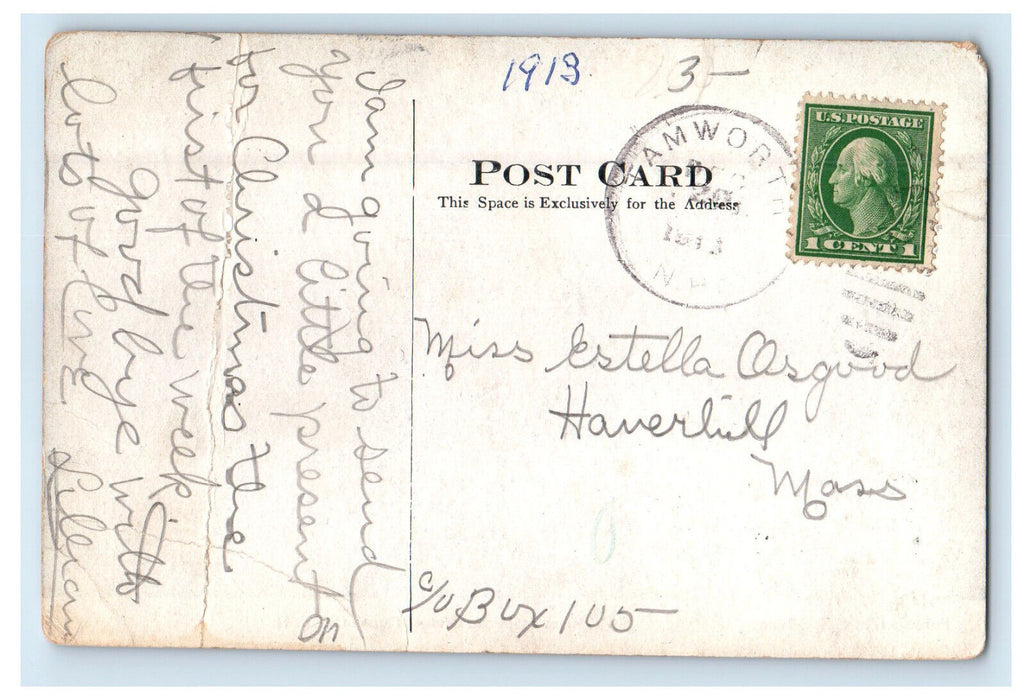 1913
3-
U.S. POSTAGE
1 CENT 1
TAMWORTH
1913
N.H.
POST CARD
This Space is Exclusively for the Address
Miss Estella Osgood
Haverhill
Mass
c/o Box 105
I am going to send
you a little present on
or Christmas the
first of the week
good bye with
lots of love Lillian